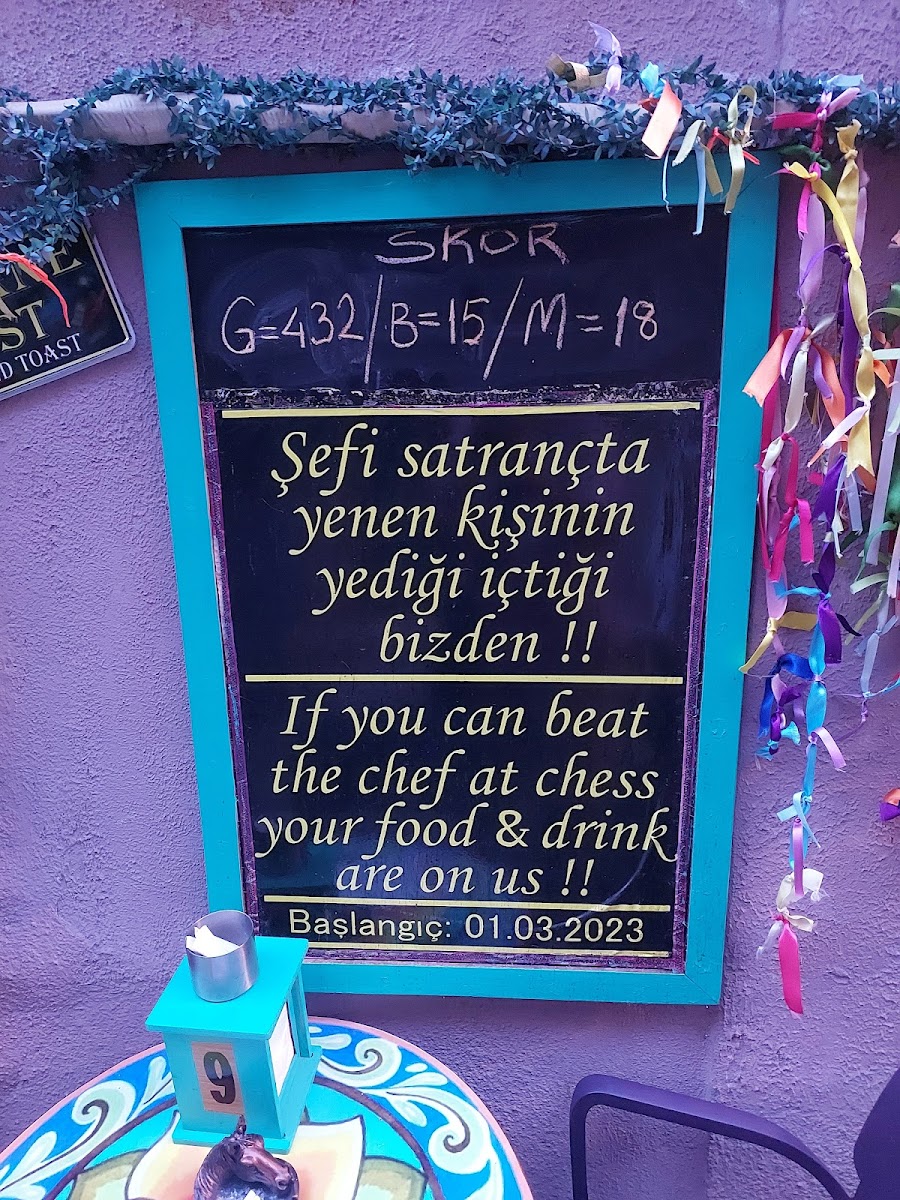 SKOR
G=432/B=15/M=18
ST
D TOAST
Şefi satrançta
yenen kişinin
yediği içtiği
bizden !!
If you can beat
the chef at chess
your food & drink
are on us !!
Başlangıç: 01.03.2023
9